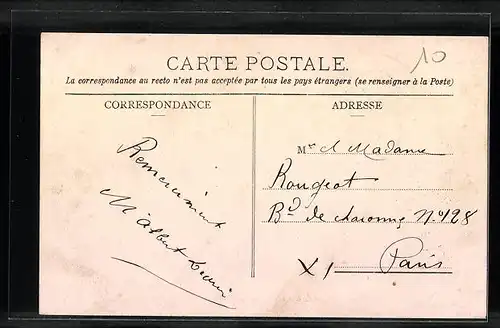 10
CARTE POSTALE.
La correspondance au recto n'est pas acceptée par tous les pays étrangers (se renseigner à la Poste)
CORRESPONDANCE
ADRESSE
Remerciment
M Albert
Mr et Madame
Rougeot
Bd de Charonne No 128
XI Paris